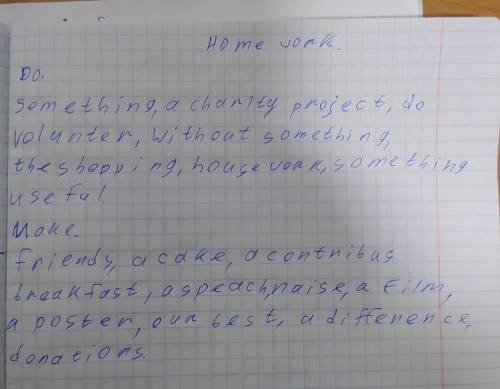 Home work.
Do.
something, a charity project, do
volunter, without something,
the shopping, house work, something
useful
Make.
friends, a cake, a contribas
breakfast, a speach, naise, a film,
a poster, our best, a difference,
donations.